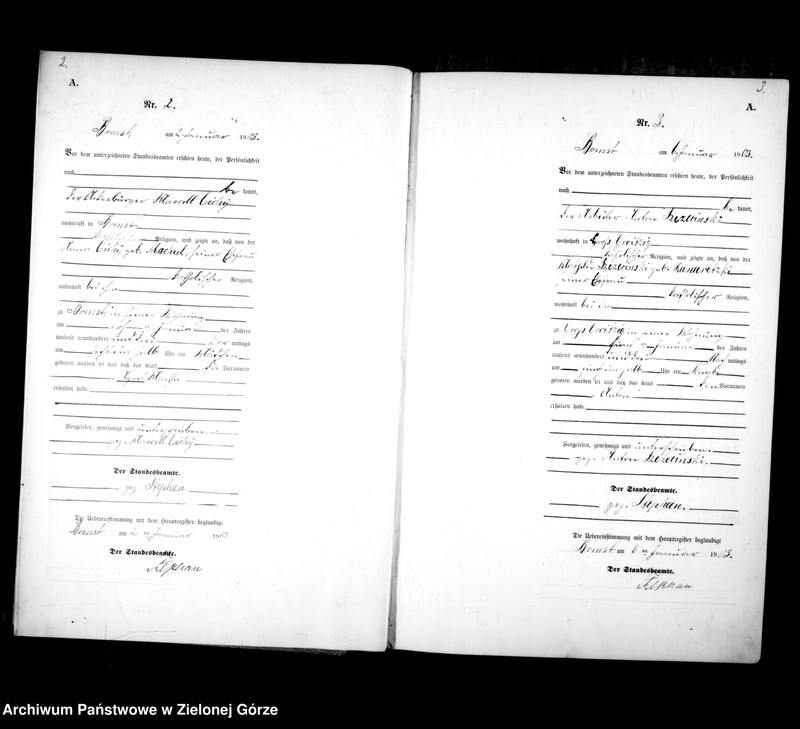 2.
A.
Nr. 2.
Bomst, am 2. Januar 1903.
Vor dem unterzeichneten Standesbeamten erschien heute, der Persönlichkeit
nach
be kannt,
der Ackerbürger Marcell Cichy
wohnhaft in Bomst
katholischer Religion, und zeigte an, daß von der
Anna Cichy geb. Machul, seiner Ehefrau
katholischer Religion,
wohnhaft bei ihm
zu Bomst in seiner Wohnung
am ersten Januar des Jahres
tausend neunhundert und drei Vor mittags
um Uhr ein Mädchen
geboren worden sei und daß das Kind die Vornamen
Martha
erhalten habe
Vorgelesen, genehmigt und unterschrieben.
gez. Marcell Cichy
Der Standesbeamte.
gez. Stephan
Die Uebereinstimmung mit dem Hauptregister beglaubigt
Bomst am 2 ten Januar 1903
Der Standesbeamte.
Stephan
3.
A.
Nr. 3.
Bomst am 6. Januar 1903.
Vor dem unterzeichneten Standesbeamten erschien heute, der Persönlichkeit
nach
be kannt,
der Arbeiter Anton
wohnhaft in Groß
katholischer Religion, und zeigte an, daß von der
geb.
seiner Ehefrau
katholischer Religion,
wohnhaft bei ihm
zu Groß in seiner Wohnung
am Januar des Jahres
tausend neunhundert und drei Nach mittags
um fünf ein halb Uhr ein Knabe
geboren worden sei und daß das Kind den Vornamen
Anton
erhalten habe
Vorgelesen, genehmigt und unterschrieben.
gez. Anton
Der Standesbeamte.
gez. Stephan.
Die Uebereinstimmung mit dem Hauptregister beglaubigt
Bomst am 6 ten Januar 1903.
Der Standesbeamte.
Stephan
Archiwum Państwowe w Zielonej Górze